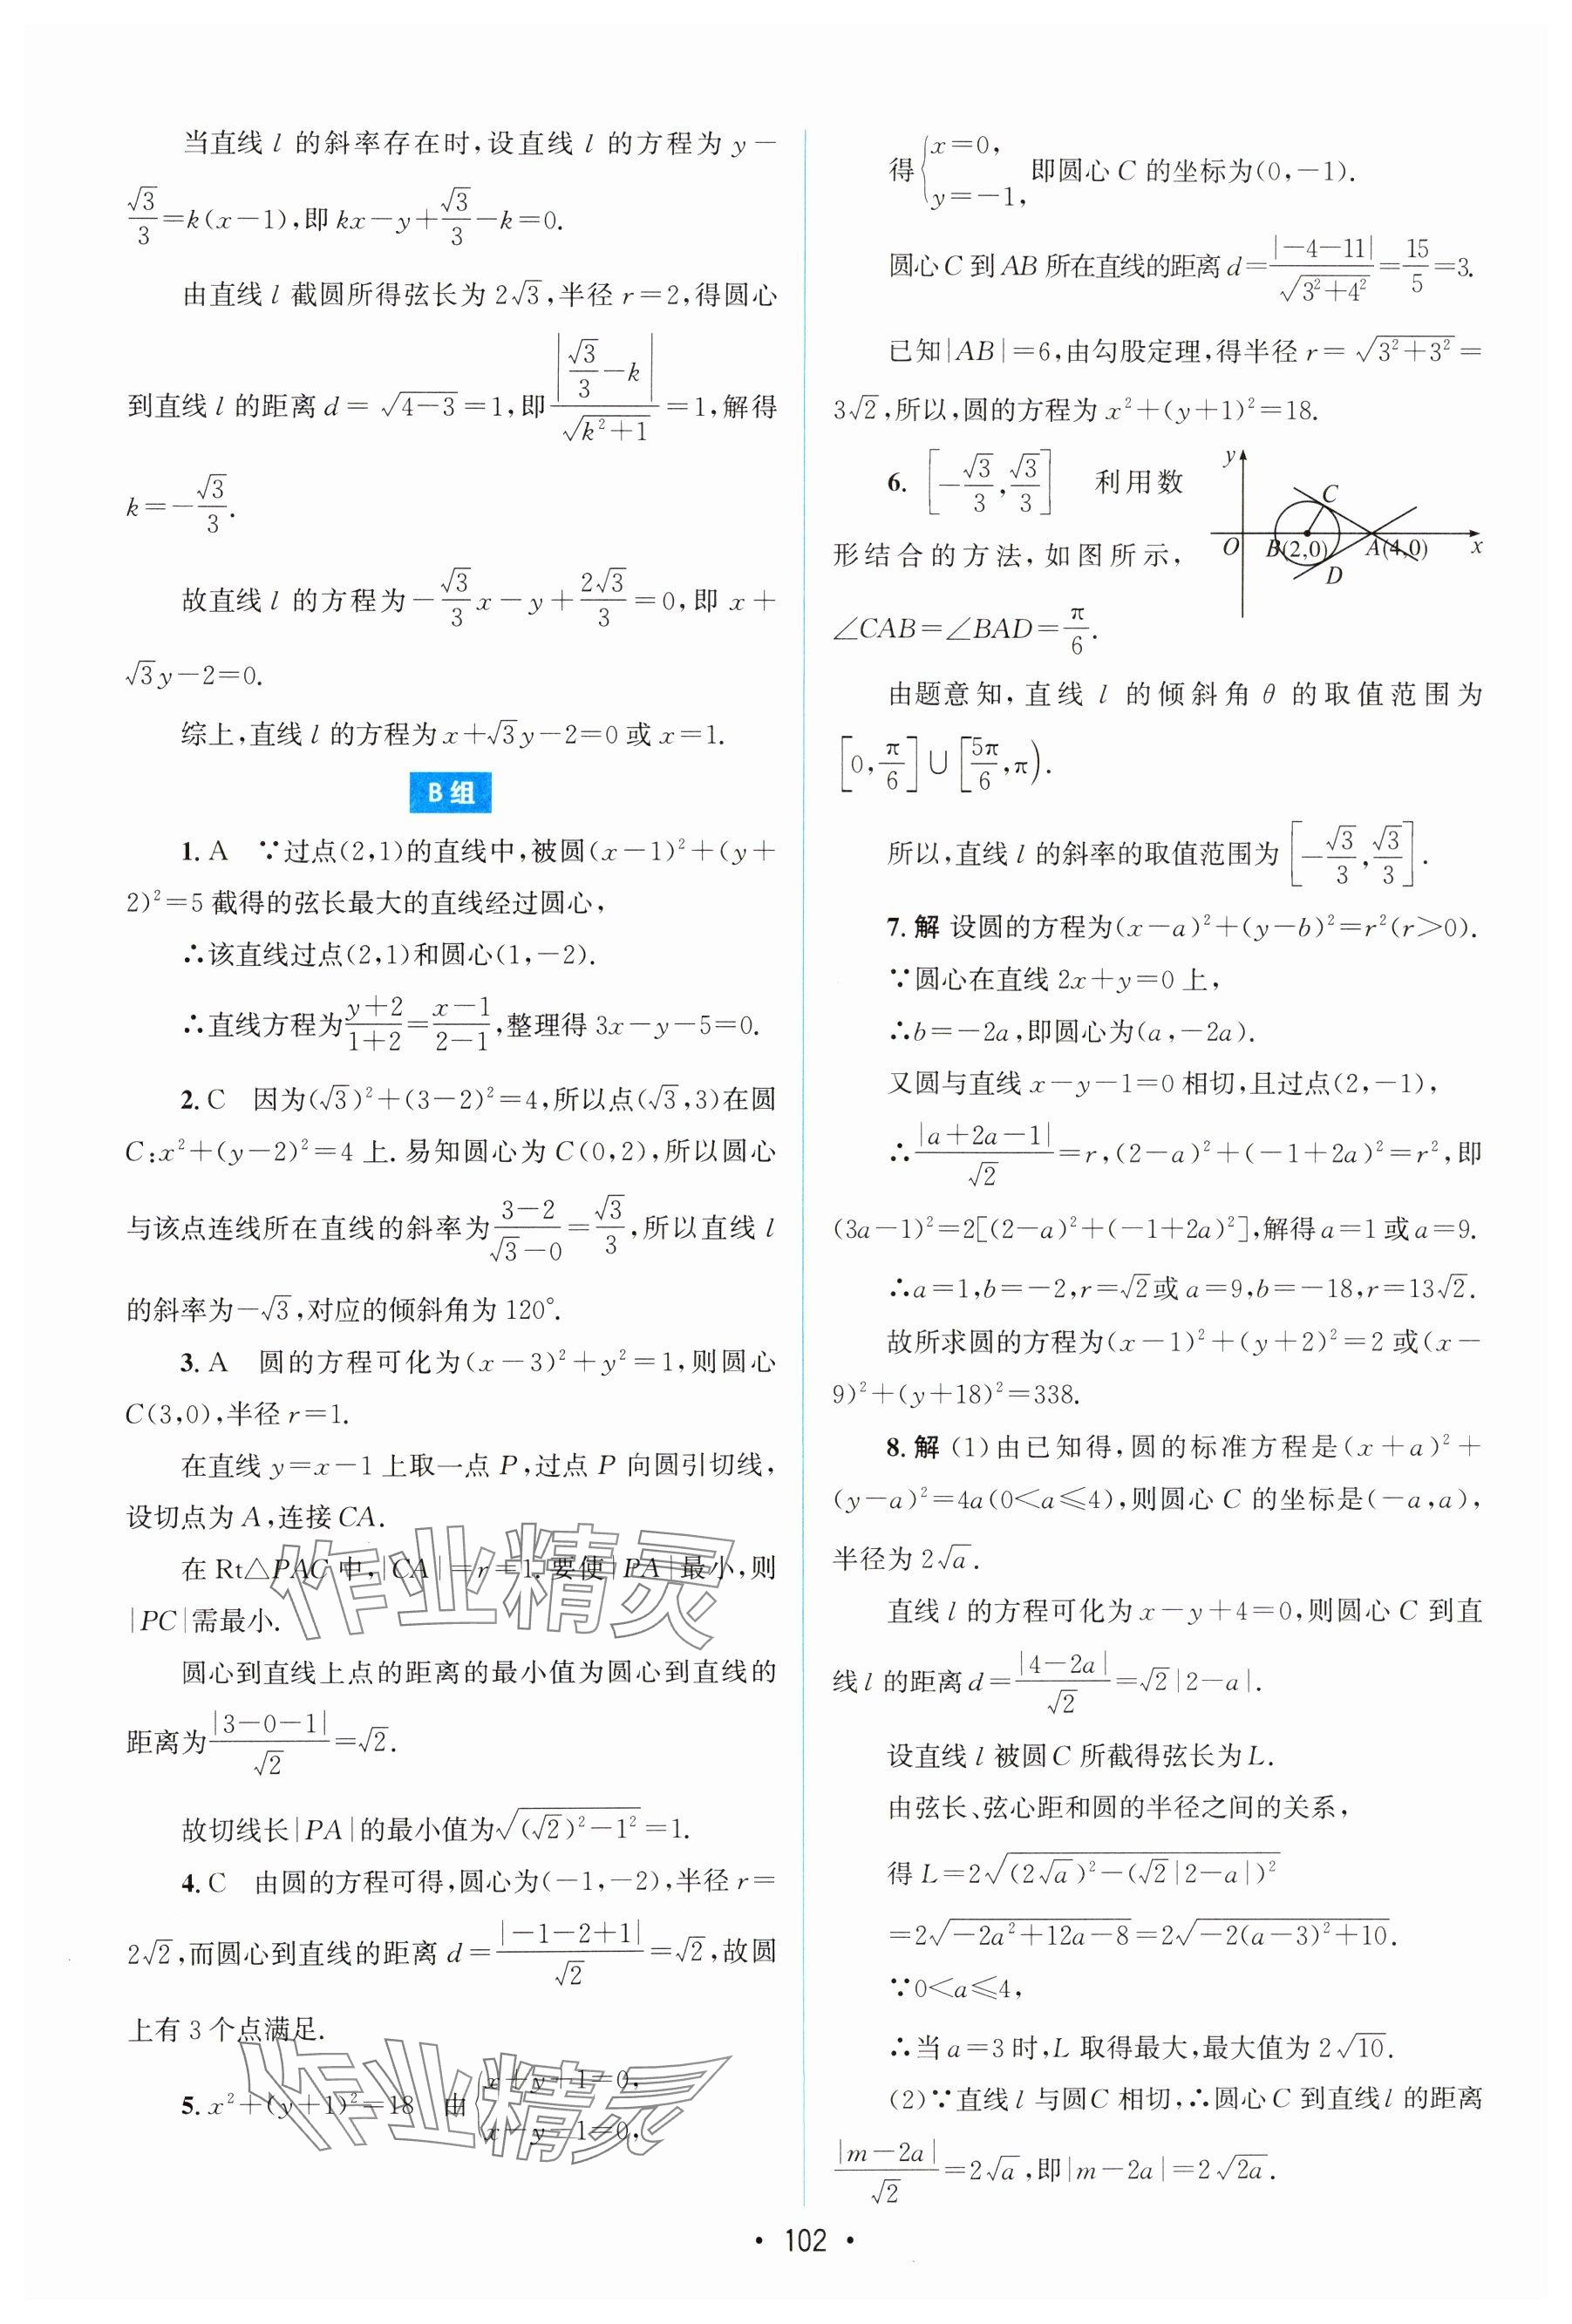 当直线 l 的斜率存在时,设直线 l 的方程为 y-
√3/3=k(x-1),即 kx-y+√3/3-k=0.
由直线 l 截圆所得弦长为 2√3,半径 r=2,得圆心
到直线 l 的距离 d=√(4-3)=1,即|√3/3-k|/√(k²+1)=1,解得
k=-√3/3.
故直线 l 的方程为-√3/3x-y+2√3/3=0,即 x+
√3y-2=0.
综上,直线 l 的方程为 x+√3y-2=0 或 x=1.
B 组
1. A ∵过点(2,1)的直线中,被圆(x-1)²+(y+
2)²=5 截得的弦长最大的直线经过圆心,
∴该直线过点(2,1)和圆心(1,-2).
∴直线方程为(y+2)/(1+2)=(x-1)/(2-1),整理得 3x-y-5=0.
2. C 因为(√3)²+(3-2)²=4,所以点(√3,3)在圆
C:x²+(y-2)²=4 上.易知圆心为 C(0,2),所以圆心
与该点连线所在直线的斜率为(3-2)/(√3-0)=√3/3,所以直线 l
的斜率为-√3,对应的倾斜角为 120°.
3. A 圆的方程可化为(x-3)²+y²=1,则圆心
C(3,0),半径 r=1.
在直线 y=x-1 上取一点 P,过点 P 向圆引切线,
设切点为 A,连接 CA.
在 Rt△PAC 中,|CA|=r=1.要使|PA|最小,则
|PC|需最小.
圆心到直线上点的距离的最小值为圆心到直线的
距离为|3-0-1|/√2=√2.
故切线长|PA|的最小值为√((√2)²-1²)=1.
4. C 由圆的方程可得,圆心为(-1,-2),半径 r=
2√2,而圆心到直线的距离 d=|-1-2+1|/√2=√2,故圆
上有 3 个点满足.
5. x²+(y+1)²=18 由{x+y+1=0,
x-y-1=0,
得{x=0,
y=-1, 即圆心 C 的坐标为(0,-1).
圆心 C 到 AB 所在直线的距离 d=|-4-11|/√(3²+4²)=15/5=3.
已知|AB|=6,由勾股定理,得半径 r=√(3²+3²)=
3√2,所以,圆的方程为 x²+(y+1)²=18.
6. [-√3/3,√3/3] 利用数
形结合的方法,如图所示,
∠CAB=∠BAD=π/6.
y
C
O B(2,0) A(4,0) x
D
由题意知,直线 l 的倾斜角 θ 的取值范围为
[0,π/6]∪[5π/6,π).
所以,直线 l 的斜率的取值范围为[-√3/3,√3/3].
7. 解 设圆的方程为(x-a)²+(y-b)²=r²(r>0).
∵圆心在直线 2x+y=0 上,
∴b=-2a,即圆心为(a,-2a).
又圆与直线 x-y-1=0 相切,且过点(2,-1),
∴|a+2a-1|/√2=r,(2-a)²+(-1+2a)²=r²,即
(3a-1)²=2[(2-a)²+(-1+2a)²],解得 a=1 或 a=9.
∴a=1,b=-2,r=√2或 a=9,b=-18,r=13√2.
故所求圆的方程为(x-1)²+(y+2)²=2 或(x-
9)²+(y+18)²=338.
8. 解 (1)由已知得,圆的标准方程是(x+a)²+
(y-a)²=4a(0<a≤4),则圆心 C 的坐标是(-a,a),
半径为 2√a.
直线 l 的方程可化为 x-y+4=0,则圆心 C 到直
线 l 的距离 d=|4-2a|/√2=√2|2-a|.
设直线 l 被圆 C 所截得弦长为 L.
由弦长、弦心距和圆的半径之间的关系,
得 L=2√((2√a)²-(√2|2-a|)²)
=2√(-2a²+12a-8)=2√(-2(a-3)²+10).
∵0<a≤4,
∴当 a=3 时,L 取得最大,最大值为 2√10.
(2)∵直线 l 与圆 C 相切,∴圆心 C 到直线 l 的距离
|m-2a|/√2=2√a,即|m-2a|=2√(2a).
作业精灵
作业精灵
· 102 ·